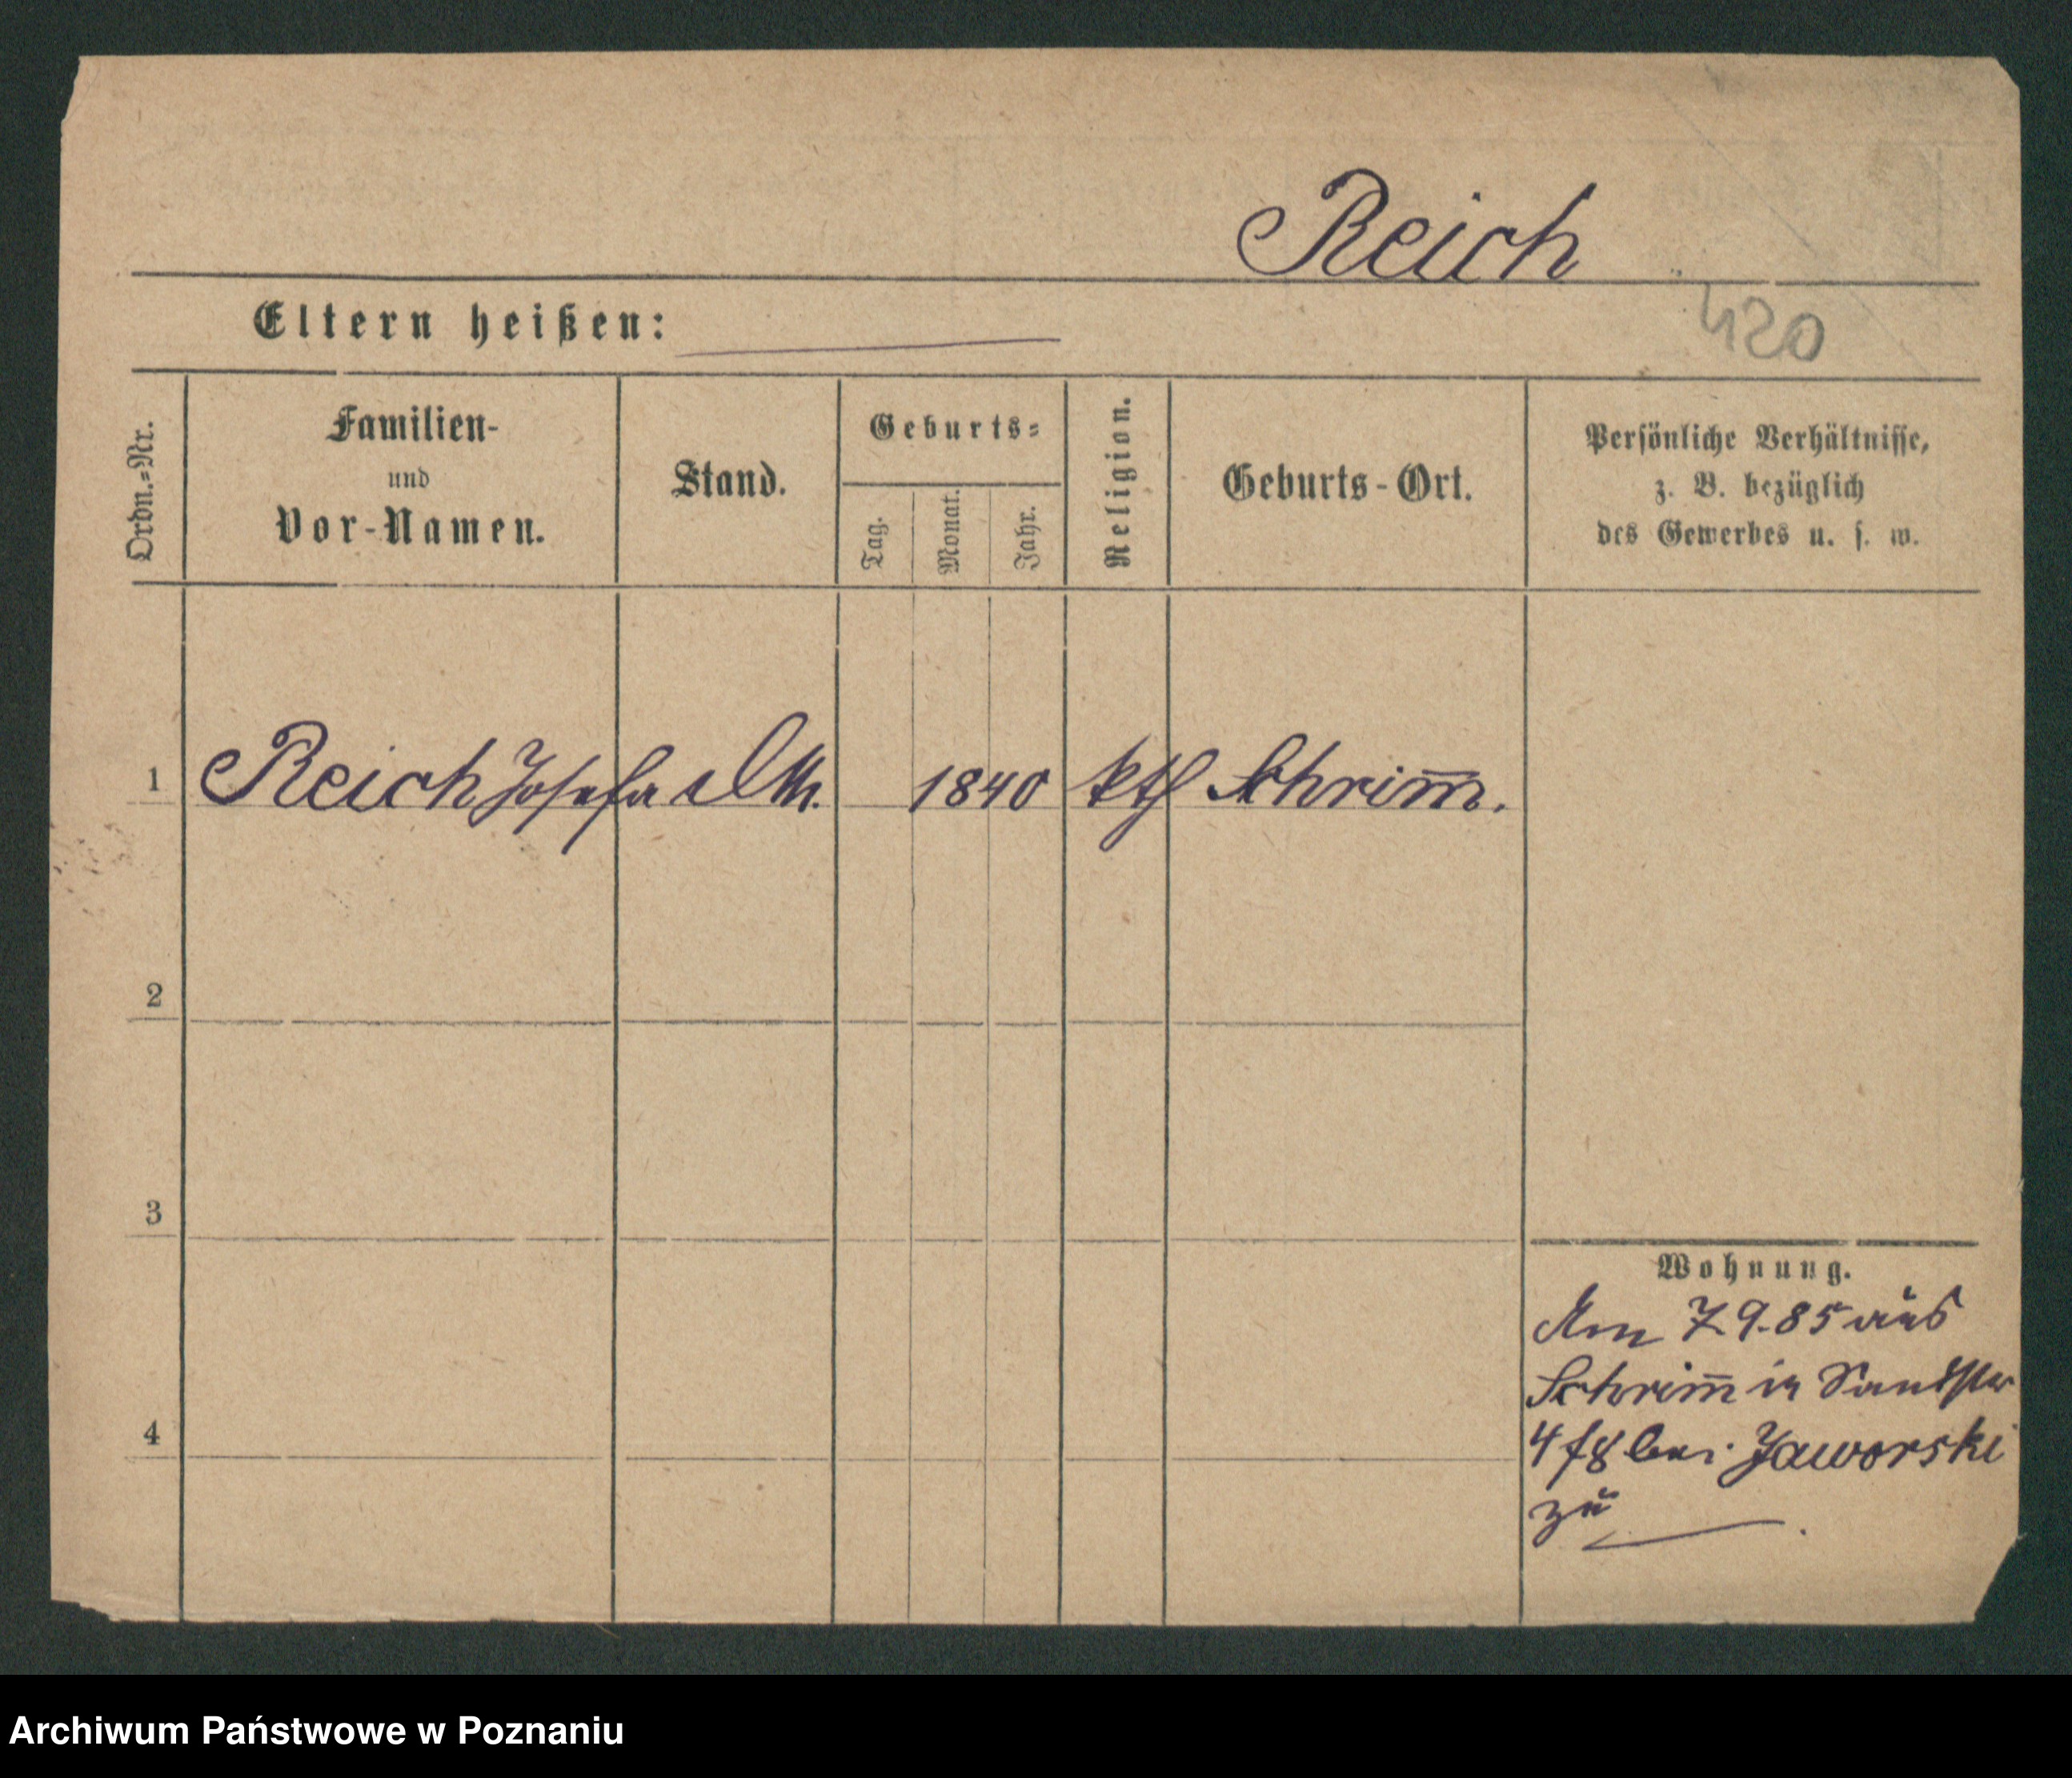 Reich
Eltern heißen:
420
Ordn.=Nr.
Familien-
und
Vor-Namen.
Stand.
Geburts=
Tag.
Monat.
Jahr.
Religion.
Geburts-Ort.
Persönliche Verhältnisse,
z. B. bezüglich
des Gewerbes u. s. w.
1 Reich Josefa 1840 kth Schrim̅.
2
3
4
Wohnung.
Am 7.9.85 aus
Schrim̅ in Sandstr
4 bei Jaworski
zu
Archiwum Państwowe w Poznaniu